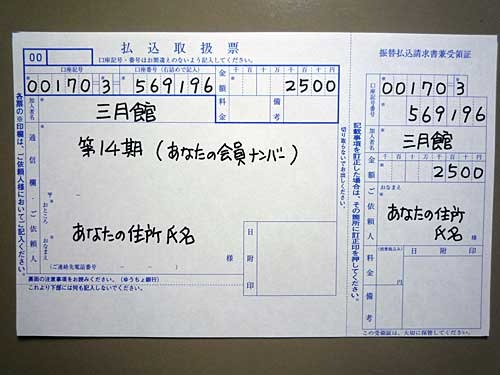 00
払込取扱票
口座記号・番号はお間違えのないよう記入してください。
口座記号 口座番号(右詰めで記入)
00170 3 569196
金額 千 百 十 万 千 百 十 円
2500
加入者名 三月館
料金 備考
通信欄・ご依頼人
第14期(あなたの会員ナンバー)
おところ
おなまえ
あなたの住所氏名
様
(ご連絡先電話番号 ー ー )
日附印
裏面の注意事項をお読みください。(ゆうちょ銀行)
これより下部には何も記入しないでください。
各票の※印欄は、ご依頼人様においてご記入ください。
切り取らないでお出しください。
記載事項を訂正した場合は、その箇所に訂正印を押してください。
振替払込請求書兼受領証
口座記号
00170 3
口座番号
569196
加入者名 三月館
金額 千 百 十 万 千 百 十 円
2500
おなまえ
あなたの住所
氏名
様
ご依頼人
料金
日附印
円
備考
この受領証は、大切に保管してください。